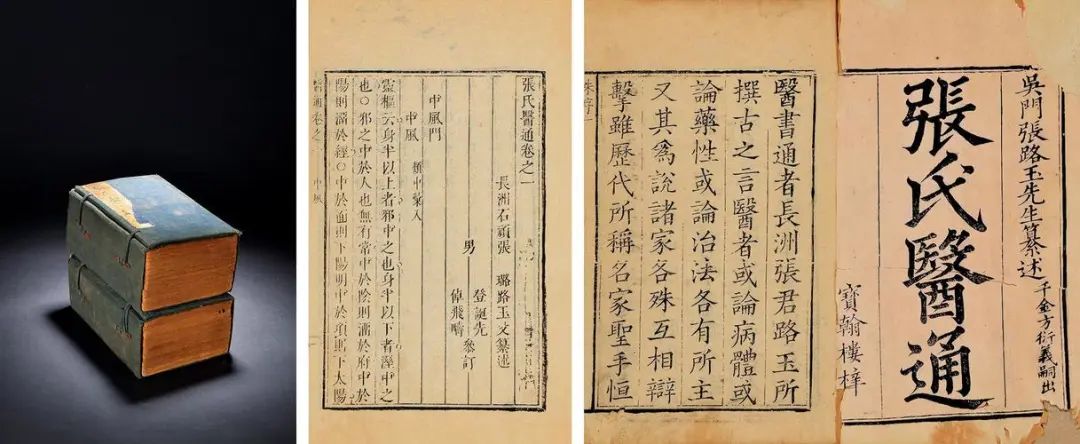 張氏醫通卷之一
長洲石頑張 璐路玉父纂述
男 登誕先
倬飛疇
參訂
中風門
中風 類中彙入
靈樞云身半以上者邪中之也身半以下者溼中之
也○邪之中於人也無有常中於陰則溜於府中於
陽則溜於經○中於面則下陽明中於項則下太陽
醫通卷之一 中風
吳門張路玉先生纂述 千金方衍義嗣出
張氏醫通
寶翰樓梓
醫書通者長洲張君路玉所
撰古之言醫者或論病體或
論藥性或論治法各有所主
又其爲說諸家各殊互相辯
擊雖歷代所稱名家聖手恒